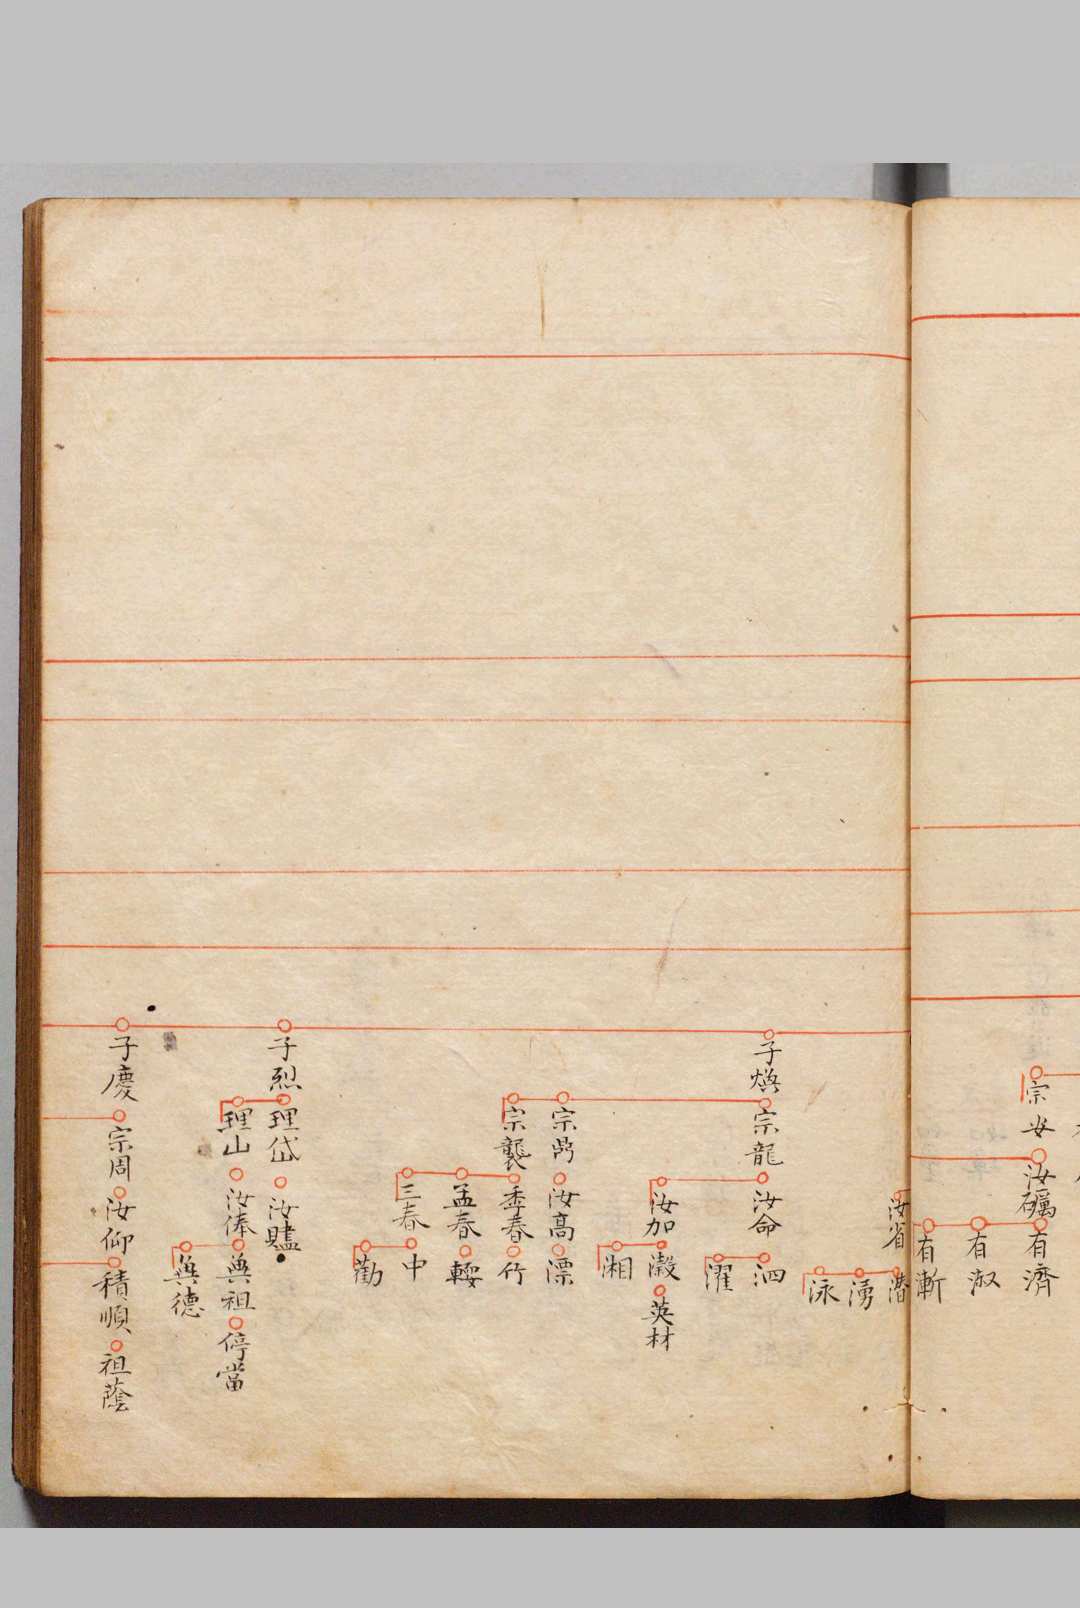 宗安
汝礪
有濟
有淑
有漸
汝省
潜
湧
泳
子煥
宗龍
汝命
泗
濯
汝加
澂
英材
湘
宗鼎
汝高
漂
宗襲
季春
竹
孟春
輕
三春
中
勸
子烈
理岱
汝贐
理山
汝俸
興祖
停當
興德
子慶
宗周
汝仰
積順
祖蔭